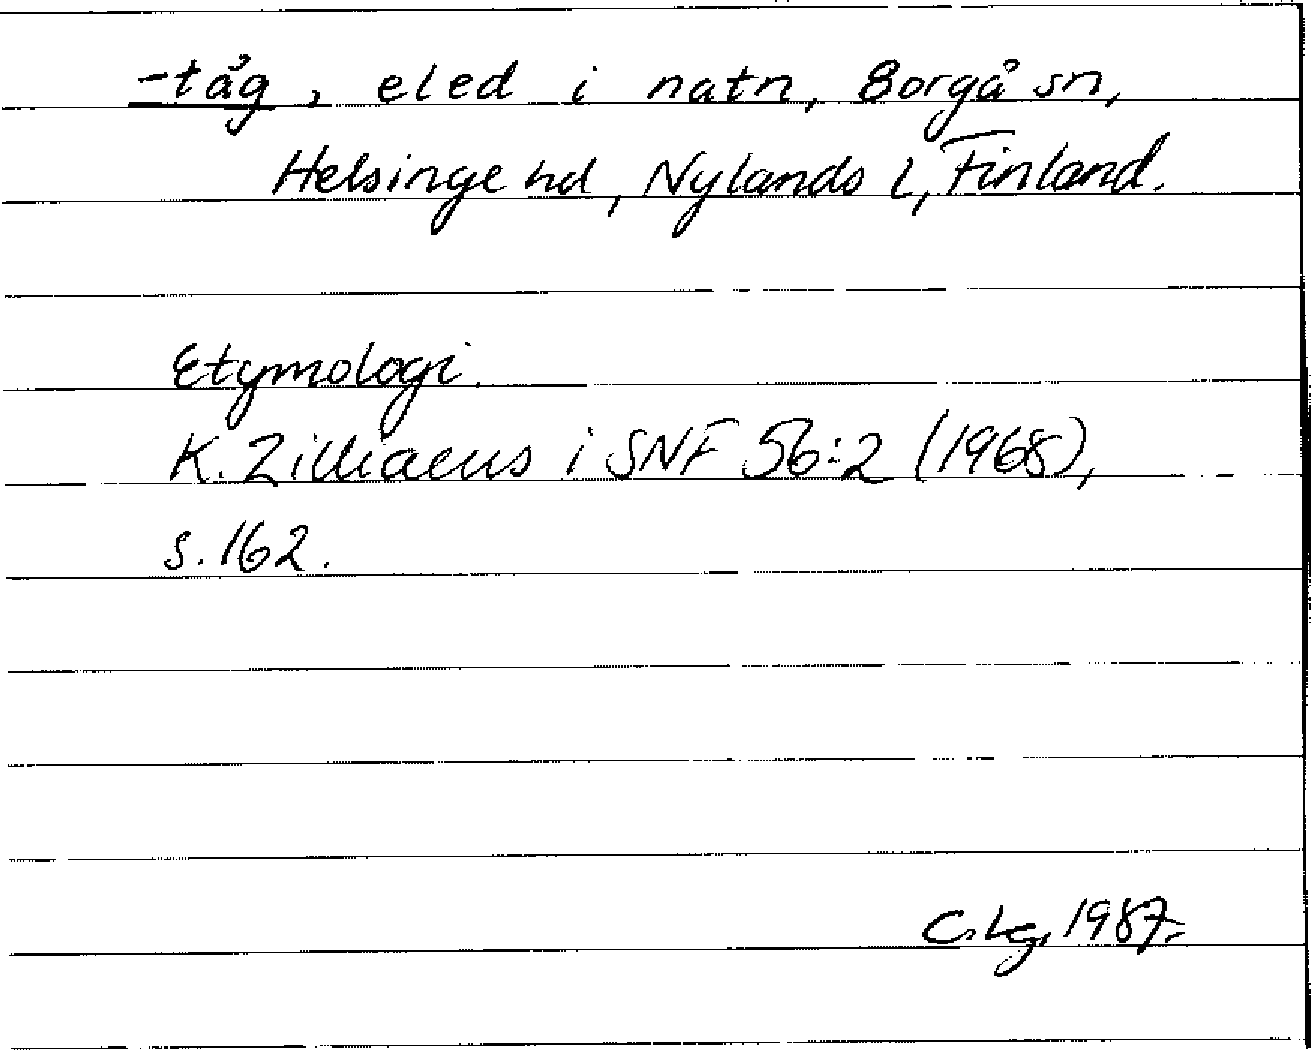 -tåg, eled i natn, Borgå sn,
Helsinge hd, Nylands l, Finland.
Etymologi.
K. Zilliacus i SNF 56:2 (1968),
s. 162.
C. Lg, 1987.